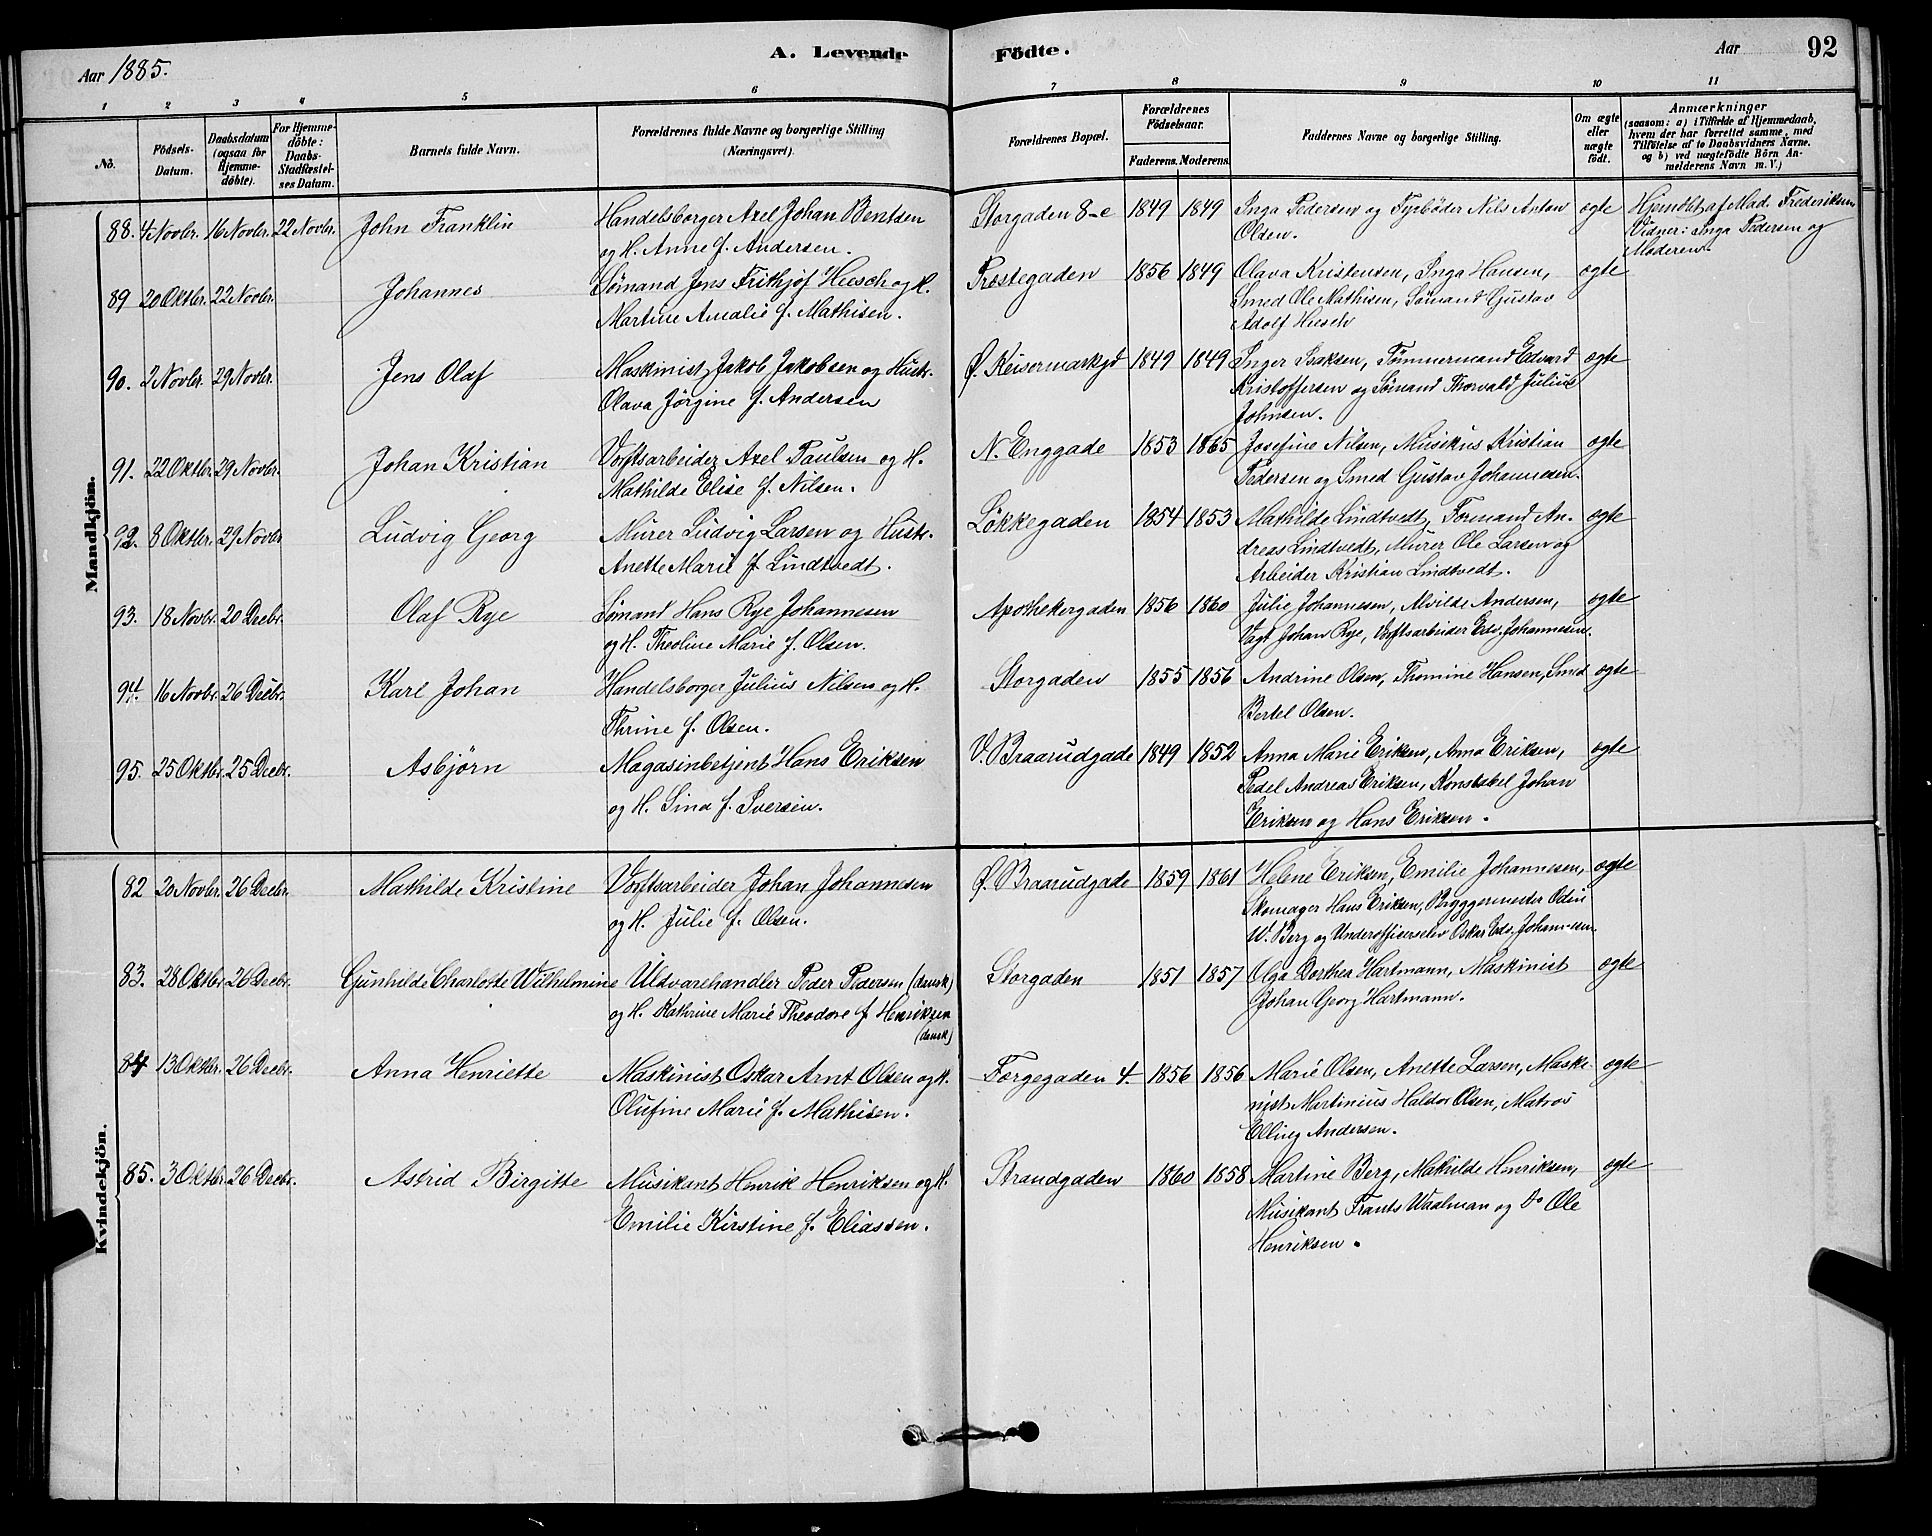 Aar 1885.
A. Levende Födte.
Aar
92
1 2 3 4 5 6 7 8 9 10 11
No.
Födsels-Datum.
Daabsdatum (ogsaa for Hjemme-döbte).
For Hjemme-döbte: Daabs-Stadfæstel-ses Datum.
Barnets fulde Navn.
Forældrenes fulde Navne og borgerlige Stilling (Næringsvei).
Forældrenes Bopæl.
Forældrenes Födselsaar.
Faderens. Moderens.
Faddernes Navne og borgerlige Stilling.
Om ægte eller uægte födt.
Anmærkninger
(saasom: a) i Tilfælde af Hjemmedaab,
hvem der har forrettet samme, med
Tilföielse af to Daabsvidners Navne,
og b) ved uægtefödte Börn An-
melderens Navn m. V.)
Mandkjön.
88. 4 Novbr. 16 Novbr. 22 Novbr. John Franklin Handelsborger Axel Johan Bentsen Storgaden 8-e 1849 1849 Inga Pedersen og Fyrbøder Nils Anton ægte Hjemdbt af Mad. Frederiksen
og H. Anne f. Andersen. Olsen. Vidner: Inga Pedersen og
Moderen
89 20 Oktbr. 22 Novbr. Johannes Sømand Jens Frithjof Hiesch og H. Prestegaden 1856 1849 Olava Kristensen, Inga Hansen, ægte
Martine Amalie f. Mathisen. Smed Ole Mathisen, Sømand Gustav
Adolf Hiesch
90. 2 Novbr. 29 Novbr. Jens Olaf Maskinist Jakob Jakobsen og Hustr. Ø. Keisermarkgd 1849 1849 Inger Isaksen, Tømmermand Edvard ægte
Olava Jørgine f. Andersen Kristoffersen og Sømand Thorvald Julius
Johnsen.
91. 22 Oktbr. 29 Novbr. Johan Kristian Værftsarbeider Axel Paulsen og H. N. Enggade 1853 1865 Josefine Nilsen, Musikus Kristian ægte
Mathilde Elise f. Nilsen. Pedersen og Smed Gustav Johannesen.
92. 8 Oktbr. 29 Novbr Ludvig Georg Murer Ludvig Larsen og Hustr. Løkkegaden 1854 1853 Mathilde Lindtvedt, Formand An- ægte
Anette Marie f Lindtvedt. dreas Lindtvedt, Murer Ole Larsen og
Arbeider Kristian Lindtvedt.
93. 18 Novbr. 20 Decbr. Olaf Rye Sømand Hans Rye Johannesen Apothekergaden 1856 1860 Julie Johannesen, Alvilde Andersen, ægte
og H. Theoline Marie f. Olsen. Vagt Johan Rye, Værftsarbeider Edv. Johannesen.
94. 16 Novbr. 26 Decbr. Karl Johan Handelsborger Julius Nilsen og H. Storgaden 1855 1856 Andrine Olsen, Thomine Hansen, Smed ægte
Thrine f. Olsen. Bertel Olsen.
95. 25 Oktbr. 25 Decbr. Asbjörn Magasinbetjent Hans Eriksen V. Braarudgade 1849 1852 Anna Marie Eriksen, Anna Eriksen, ægte
og H. Sina f. Iversen. Pedel Andreas Eriksen, Konstabel Johan
Eriksen og Hans Eriksen.
Kvindekjön.
82 20 Novbr. 26 Decbr. Mathilde Kristine Værftsarbeider Johan Johannesen Ø. Braarudgade 1859 1861 Helene Eriksen, Emilie Johannesen, ægte
og H. Julie f. Olsen. Skomager Hans Eriksen, Bryggermester Odin
W. Berg og Underofficerselev Oskar Edv. Johannesen.
83. 28 Oktbr 26 Decbr. Gunhilde Charlotte Wilhelmine Uldvarehandler Peder Pedersen (dansk) Storgaden 1851 1857 Olga Dorthea Hartmann, Maskinist ægte
og H. Kathrine Marie Theodore f Henriksen Johan Georg Hartmann.
(dansk)
84 13 Oktbr. 26 Decbr. Anna Henriette Maskinist Oskar Arnt Olsen og H. Torgegaden 4. 1856 1856 Marie Olsen, Anette Larsen, Maski- ægte
Olufine Marie f. Mathisen. nist Martinius Haldor Olsen, Matros
Elling Andersen.
85. 3 Oktbr 26 Decbr. Astrid Birgitte Musikant Henrik Henriksen og H. Strandgaden 1860 1858 Martine Berg, Mathilde Henriksen, ægte
Emilie Kirstine f. Eliassen. Musikant Frants Waalman og do Ole
Henriksen.